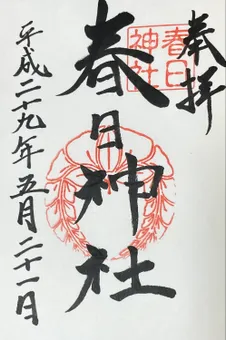 奉拝
春日
神社
春日神社
平成二十九年五月二十一日